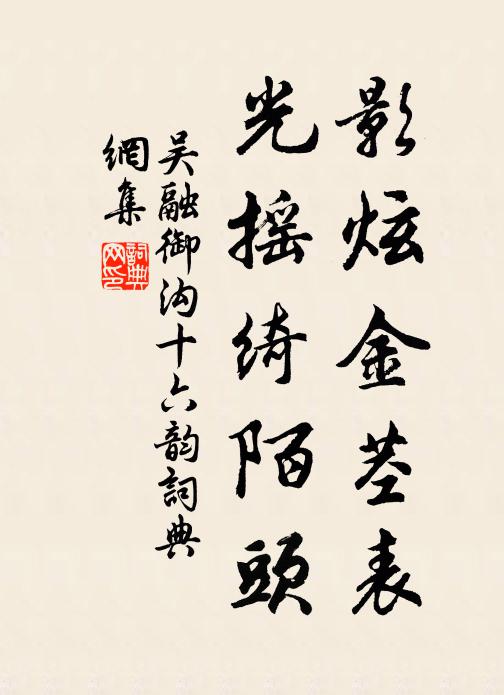 影炫金茎表
光摇绮陌頭
吴融御沟十六韵詞典
網集
詞典
网印